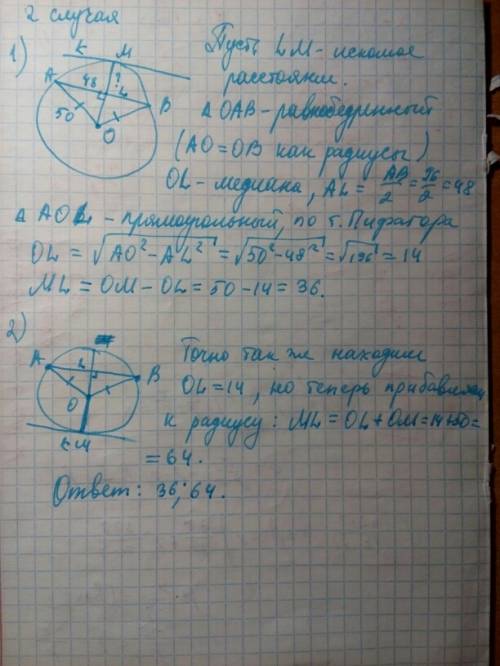 2 случая
1)
К М
А 48 ? L В
50
О
Пусть LM - искомое
расстояние.
△ ОАВ - равнобедренный
(АО = ОВ как радиусы)
OL - медиана, AL = AB/2 = 96/2 = 48
△ AOL - прямоугольный, по т. Пифагора
OL = √(AO² - AL²) = √(50² - 48²) = √196 = 14
ML = OM - OL = 50 - 14 = 36.
2)
А L В
О
К М
Точно так же находим
OL = 14, но теперь прибавляем
к радиусу: ML = OL + OM = 14 + 50 =
= 64.
Ответ: 36; 64.